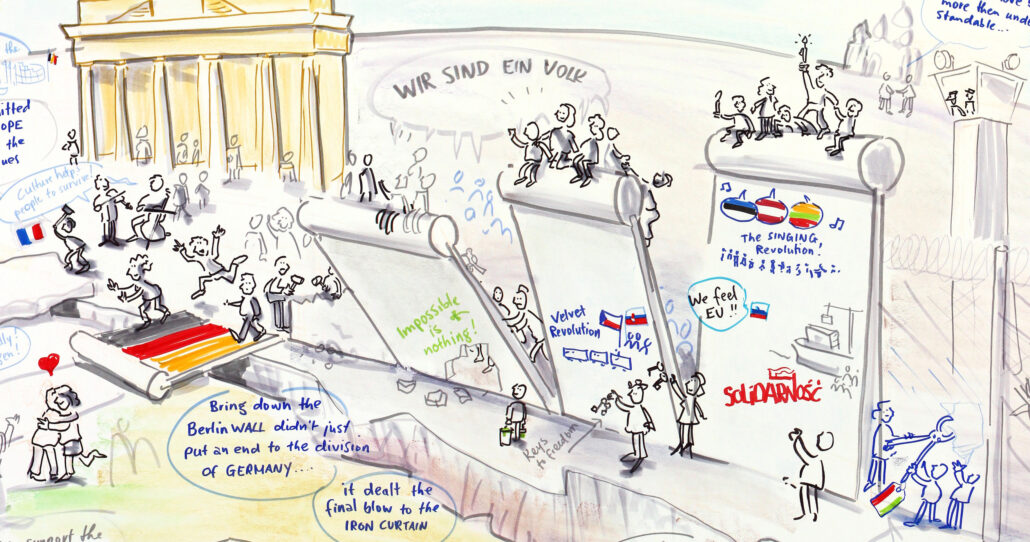 more then under
standable...
the
itted
OPE
the
ues
Culture helps
people to survive!
WIR SIND EIN VOLK
The SINGING
Revolution!
We feel
EU!!
Velvet
Revolution
Impossible
is
nothing!
SOLIDARNOŚĆ
Bring down the
Berlin WALL didn't just
put an end to the division
of GERMANY....
Keys
to Freedom
it dealt the
final blow to the
IRON CURTAIN
support the